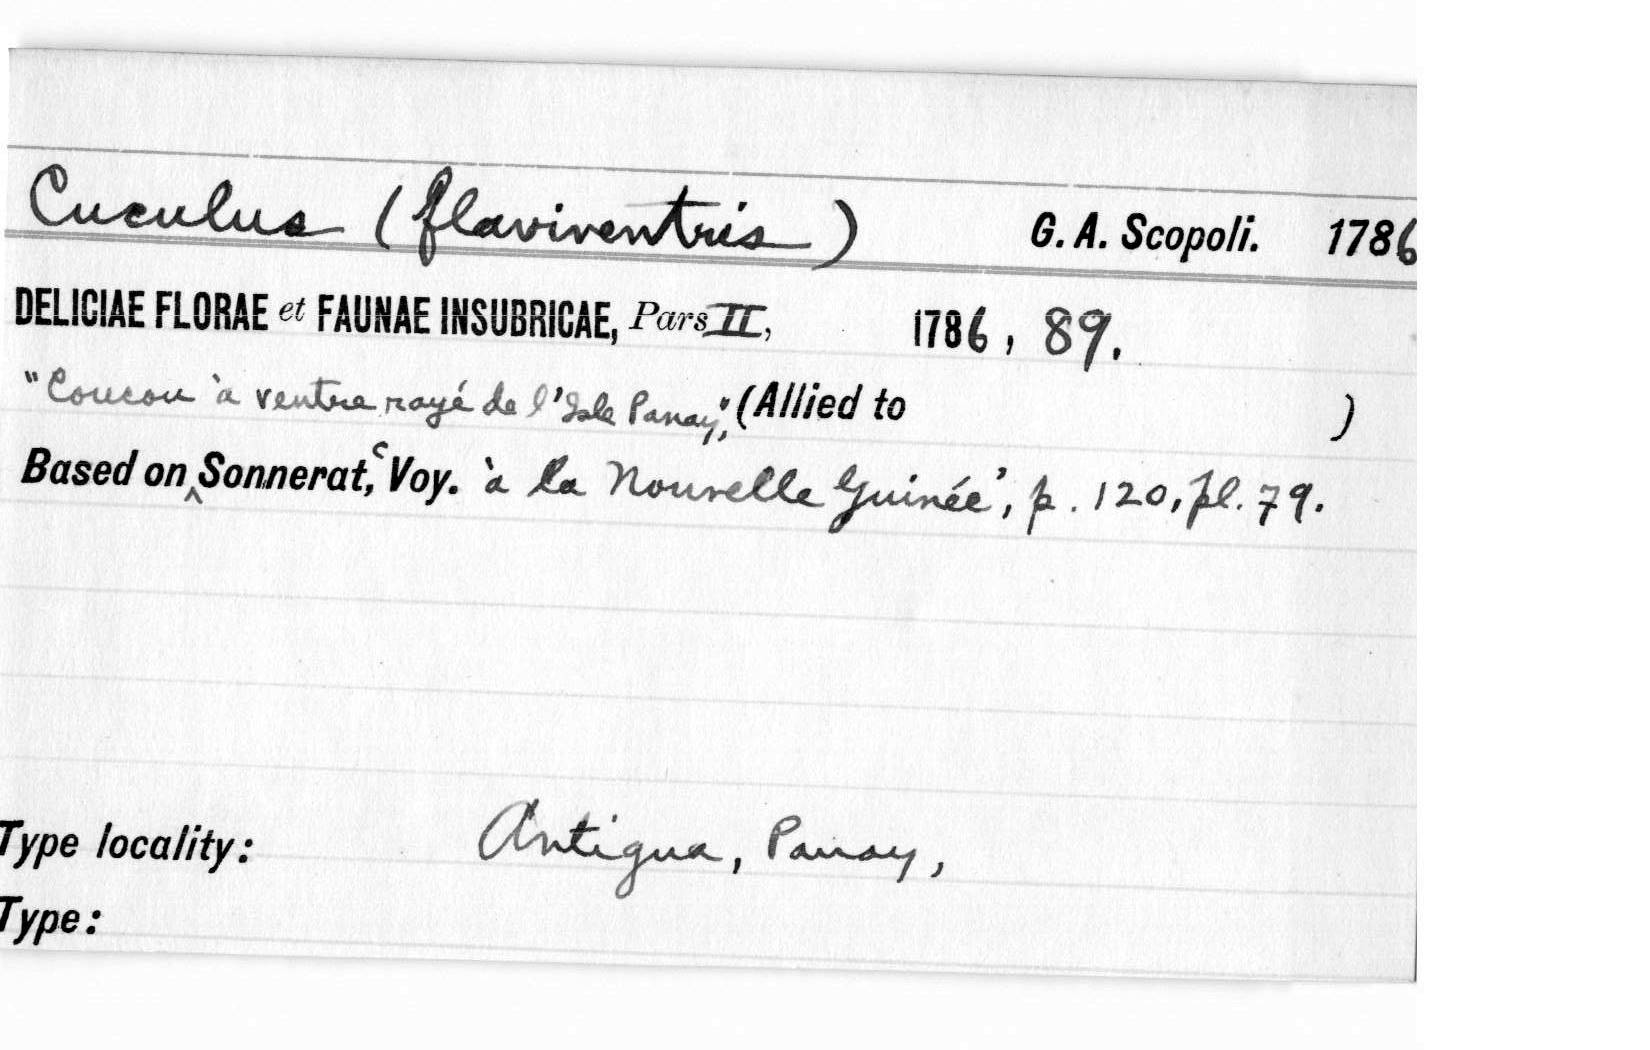 Cuculus (flaviventris) G. A. Scopoli. 1786
DELICIAE FLORAE et FAUNAE INSUBRICAE, Pars II, 1786, 89.
"Coucou à ventre rayé de l'Isle Panay", (Allied to )
Based on ‸ Sonnerat, ‘Voy. à la Nouvelle Guinée’, p. 120, pl. 79.
Type locality: Antigua, Panay,
Type: